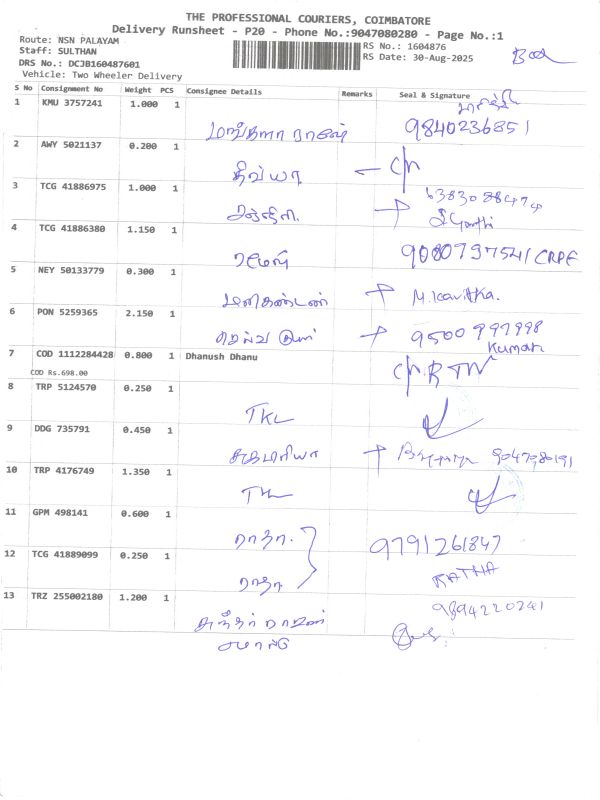 THE PROFESSIONAL COURIERS, COIMBATORE
Delivery Runsheet - P20 - Phone No.:9047080280 - Page No.:1
Route: NSN PALAYAM
Staff: SULTHAN
DRS No.: DCJB160487601
Vehicle: Two Wheeler Delivery
RS No.: 1604876
RS Date: 30-Aug-2025
S No Consignment No Weight PCS Consignee Details Remarks Seal & Signature
1 KMU 3757241 1.000 1
9840236851
2 AWY 5021137 0.200 1
திவ்யா
3 TCG 41886975 1.000 1
6383088474
4 TCG 41886380 1.150 1
ரமேஷ் 9080797541
5 NEY 50133779 0.300 1
மணிகண்டன் M. Kavitha.
6 PON 5259365 2.150 1
9500997998
Kumar
7 COD 1112284428 0.800 1 Dhanush Dhanu
COD Rs.698.00
8 TRP 5124570 0.250 1
TKL
9 DDG 735791 0.450 1
10 TRP 4176749 1.350 1
11 GPM 498141 0.600 1
ராதா. 9791261847
12 TCG 41889099 0.250 1
ராதா RATHA
13 TRZ 255002180 1.200 1
9894220241